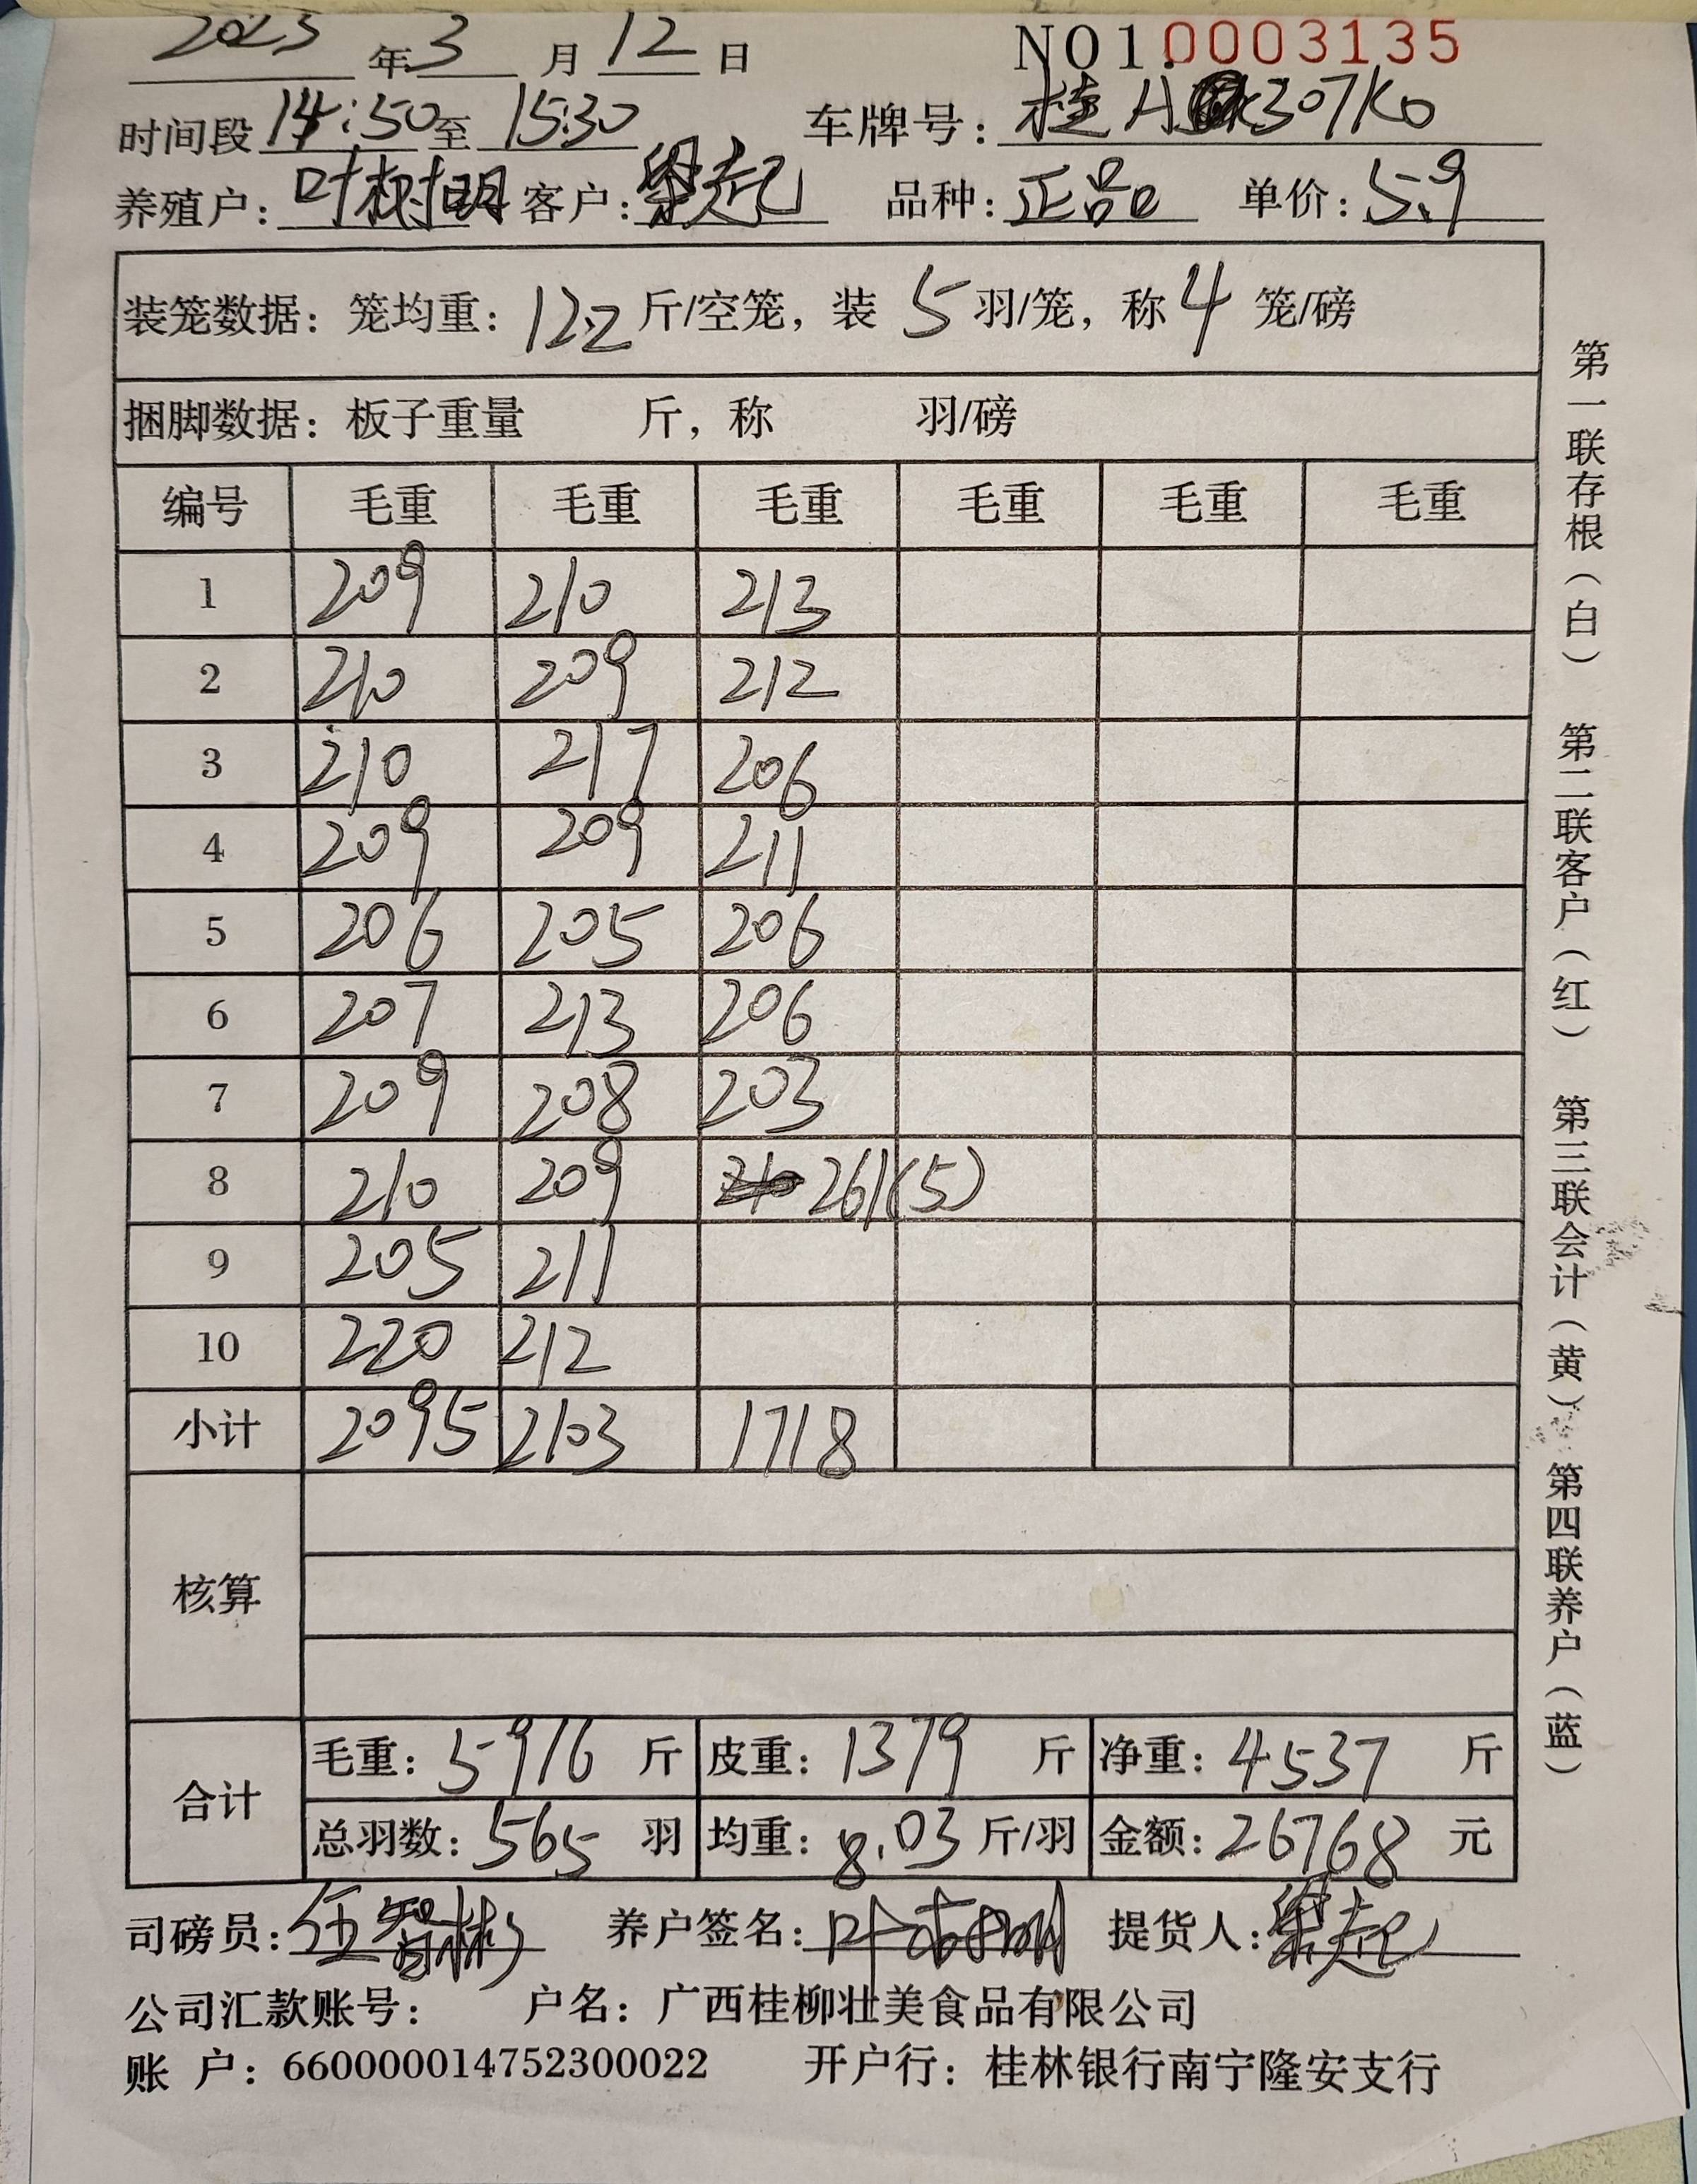 2023年3月12日 NO1.0003135
时间段14:50至15:30 车牌号:桂A307K0
养殖户:叶树明 客户:梁起 品种:正品 单价:5.9
装笼数据:笼均重:12.2斤/空笼,装5羽/笼,称4笼/磅
捆脚数据:板子重量 斤,称 羽/磅
编号 毛重 毛重 毛重 毛重 毛重 毛重
1 209 210 213
2 210 209 212
3 210 217 206
4 209 209 211
5 206 205 206
6 207 213 206
7 209 208 203
8 210 209 261(5)
9 205 211
10 220 212
小计 2095 2103 1718
核算
合计
毛重:5916斤 皮重:1379斤 净重:4537斤
总羽数:565羽 均重:8.03斤/羽 金额:26768元
司磅员:伍智彬 养户签名:叶树明 提货人:梁起
公司汇款账号: 户名:广西桂柳壮美食品有限公司
账 户:660000014752300022 开户行:桂林银行南宁隆安支行
第一联存根(白) 第二联客户(红) 第三联会计(黄) 第四联养户(蓝)